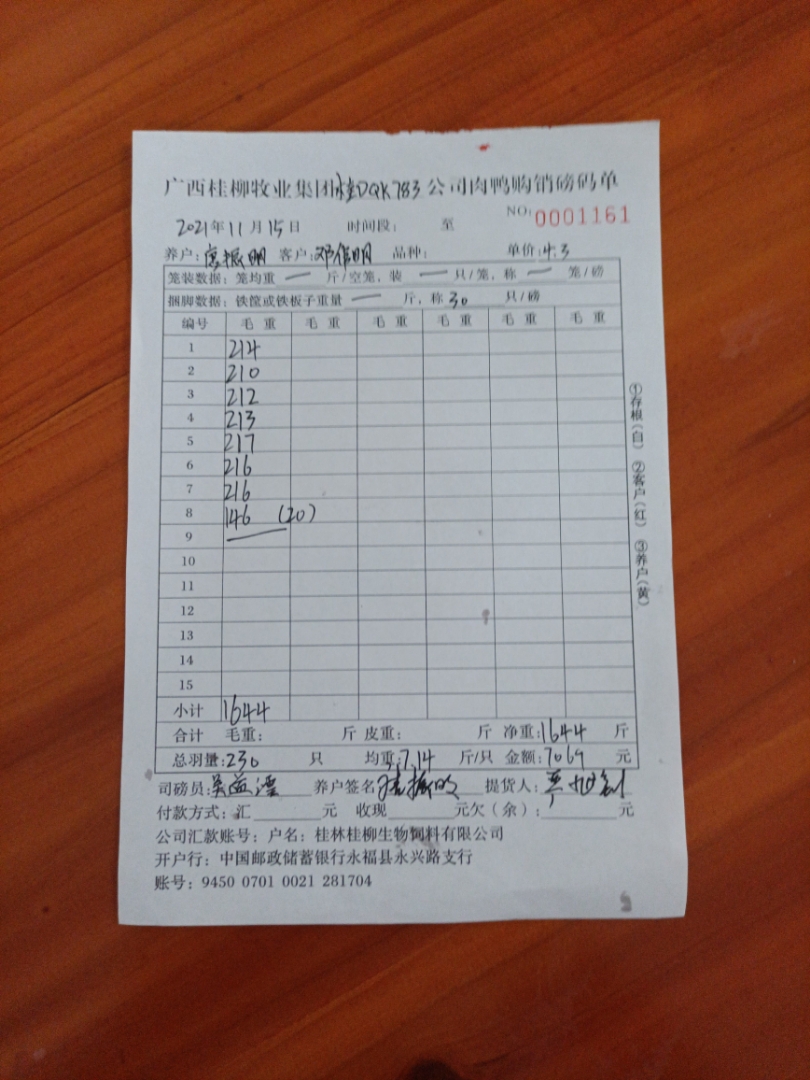 广西桂柳牧业集团桂DQK783公司肉鸭购销磅码单
NO: 0001161
2021年11月15日 时间段: 至
养户: 唐振明 客户: 邓信明 品种: 单价: 4.3
笼装数据: 笼均重 — 斤/空笼, 装 — 只/笼, 称 — 笼/磅
捆脚数据: 铁筐或铁板子重量 — 斤, 称 30 只/磅
编号 毛重 毛重 毛重 毛重 毛重 毛重
1 214
2 210
3 212
4 213
5 217
6 216
7 216
8 146 (20)
9
10
11
12
13
14
15
小计 1644
合计 毛重: 斤 皮重: 斤 净重: 1644 斤
总羽量: 230 只 均重: 7.14 斤/只 金额: 7069 元
司磅员: 养户签名 唐振明 提货人:
付款方式: 汇 元 收现 元 欠(余): 元
公司汇款账号: 户名: 桂林桂柳生物饲料有限公司
开户行: 中国邮政储蓄银行永福县永兴路支行
账号: 9450 0701 0021 281704
①存根(白) ②客户(红) ③养户(黄)